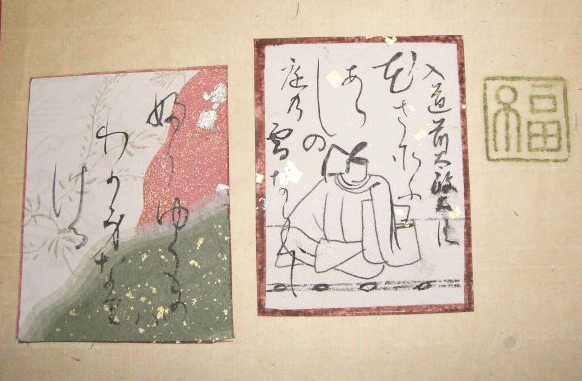 福
入道前太政大臣
花さそふ
あら
しの
庭乃雪ならて
ふりゆくものハ
わか身なり
ける